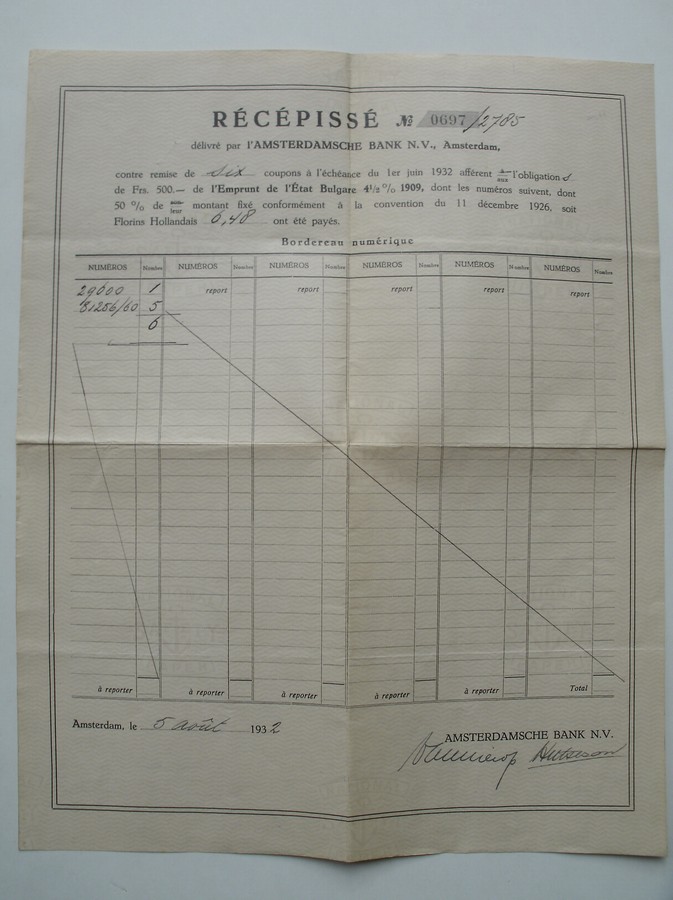 RÉCÉPISSÉ № 0697/2785
délivré par l'AMSTERDAMSCHE BANK N.V., Amsterdam,
contre remise de six coupons à l'échéance du 1er juin 1932 afférent aux l'obligation s
de Frs. 500.— de l'Emprunt de l'État Bulgare 4½% 1909, dont les numéros suivent, dont
50 % de leur montant fixé conformément à la convention du 11 décembre 1926, soit
Florins Hollandais 6,48 ont été payés.
Bordereau numérique
NUMÉROS Nombre NUMÉROS Nombre NUMÉROS Nombre NUMÉROS Nombre NUMÉROS Nombre NUMÉROS Nombre
29600 1 report report report report report
81256/60 5
6
à reporter à reporter à reporter à reporter à reporter Total
Amsterdam, le 5 août 1932
AMSTERDAMSCHE BANK N.V.